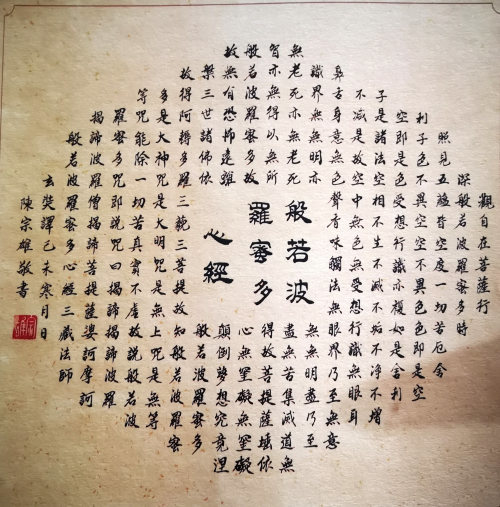 觀自在菩薩行
深般若波羅蜜多時
照見五蘊皆空度一切苦厄舍
利子色不異空空不異色色即是空
空即是色受想行識亦複如是舍利
子是諸法空相不生不滅不垢不淨不增
不減是故空中無色無受想行識無眼耳
鼻舌身意無色聲香味觸法無眼界乃至無意
識界無無明亦
無無明盡乃至
無老死亦無老死
盡無苦集滅道無
智亦無得以無所
得故菩提薩埵依
般若波羅蜜多故
心無罣礙無罣礙
故無有恐怖遠離
顛倒夢想究竟涅
槃三世諸佛依
般若波羅蜜多
故得阿耨多羅三藐三菩提故知般若波羅蜜
多是大神咒是大明咒是無上咒是無等
等咒能除一切苦真實不虛故說般若波
羅蜜多咒即說咒曰揭諦揭諦波羅
揭諦波羅僧揭諦菩提薩婆訶摩訶
般若波羅蜜多心經三藏法師
玄奘譯己未寒月日
陳宗雄敬書
般若波
羅蜜多
心經